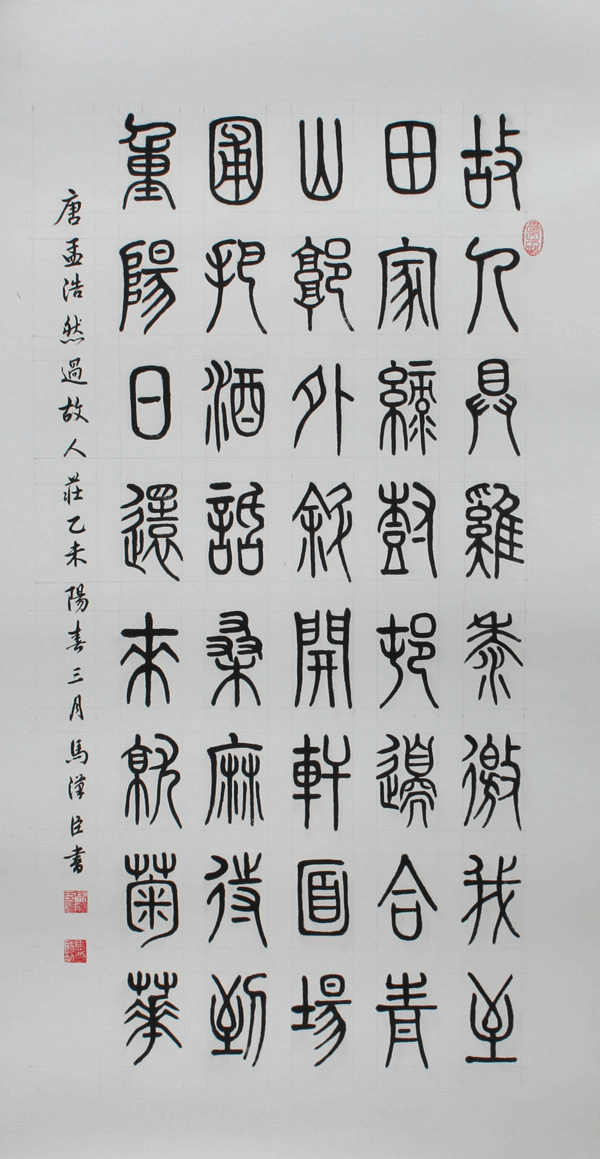 故人具雞黍徼我至
田家綠樹邨邊合青
山郭外斜開軒面場
圃把酒話桑麻待到
重陽日還來就菊華
唐孟浩然過故人莊乙未陽春三月馬漢臣書